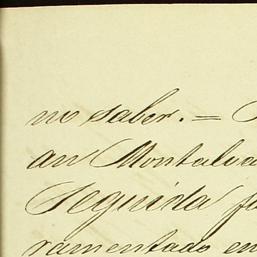 no saber. =
an Montalva
Seguida
ramentado en